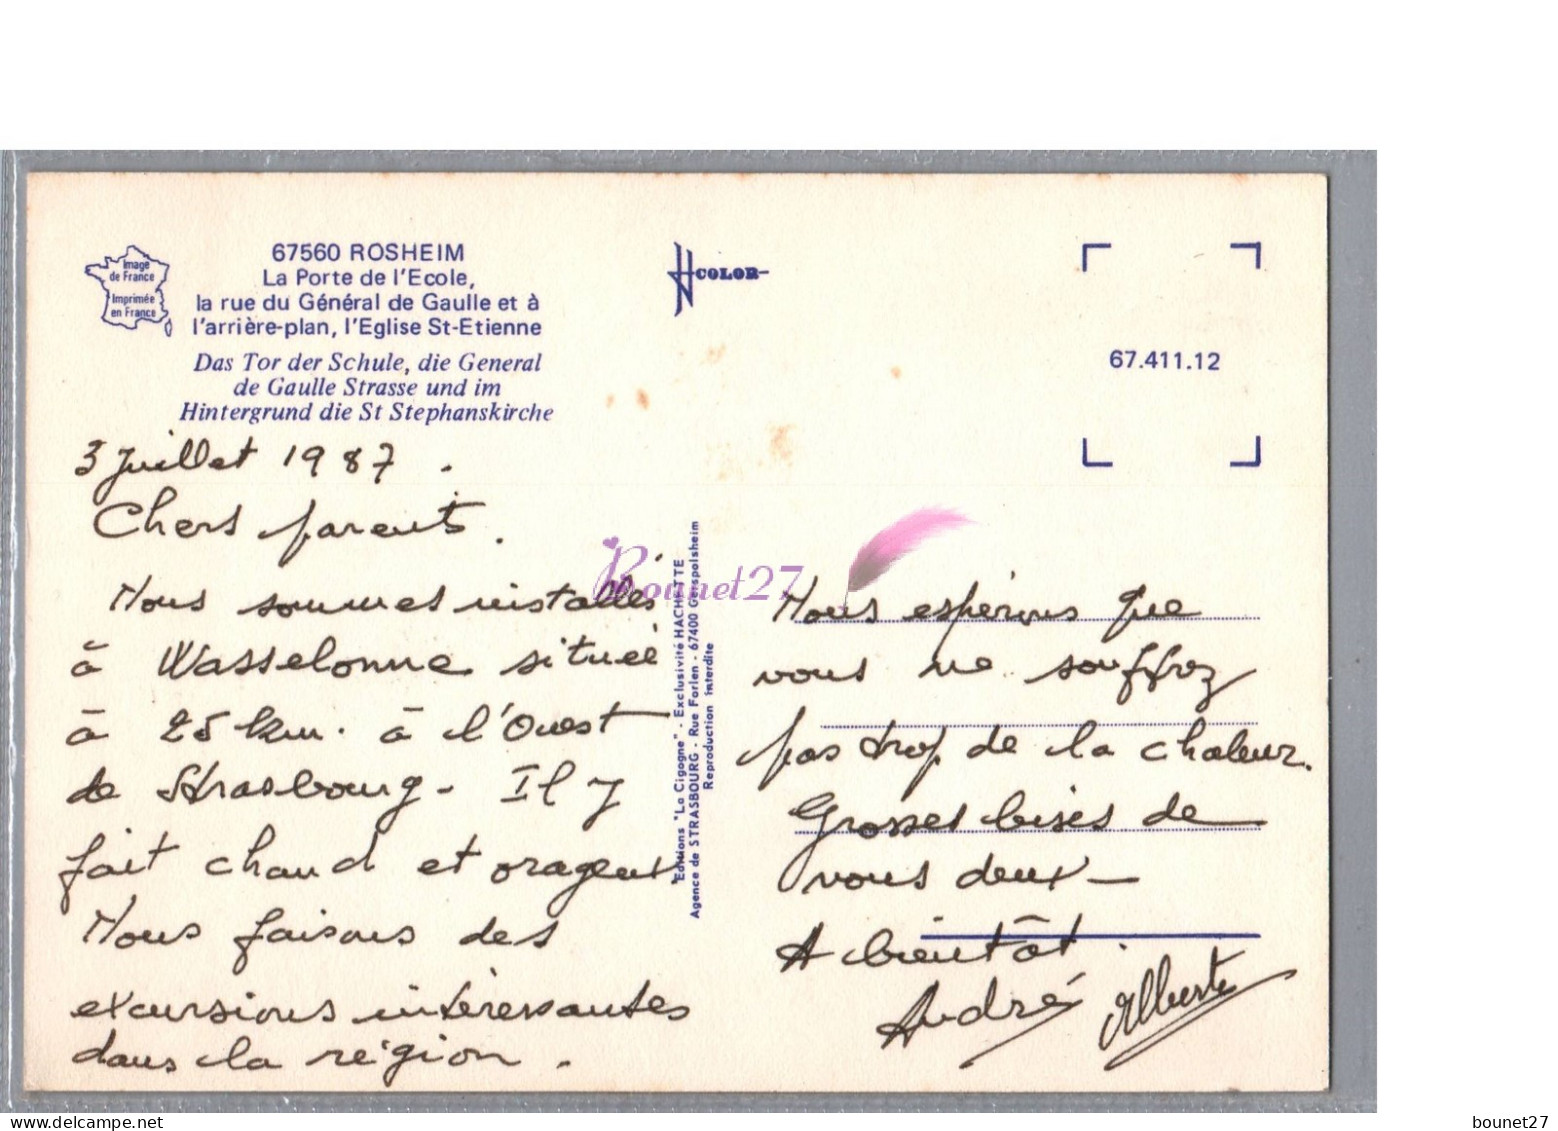 67560 ROSHEIM
La Porte de l'Ecole,
la rue du Général de Gaulle et à
l'arrière-plan, l'Eglise St-Etienne
Das Tor der Schule, die General
de Gaulle Strasse und im
Hintergrund die St Stephanskirche
Image
de France
Imprimée
en France
COLOR
67.411.12
3 Juillet 1987.
Chers parents.
Nous sommes installés
à Wasselonne située
à 25 km. à l'Ouest
de Strasbourg - Il y
fait chaud et orageux
Nous faisons des
excursions intéressantes
dans la région.
"Editions "La Cigogne" - Exclusivité HACHETTE
Agence de STRASBOURG - Rue Forlen - 67400 Geispolsheim
Reproduction interdite
Bounet27
Nous espérons que
vous ne souffrez
pas trop de la chaleur.
Grosses bises de
nous deux -
A bientôt.
André Alberte
bounet27